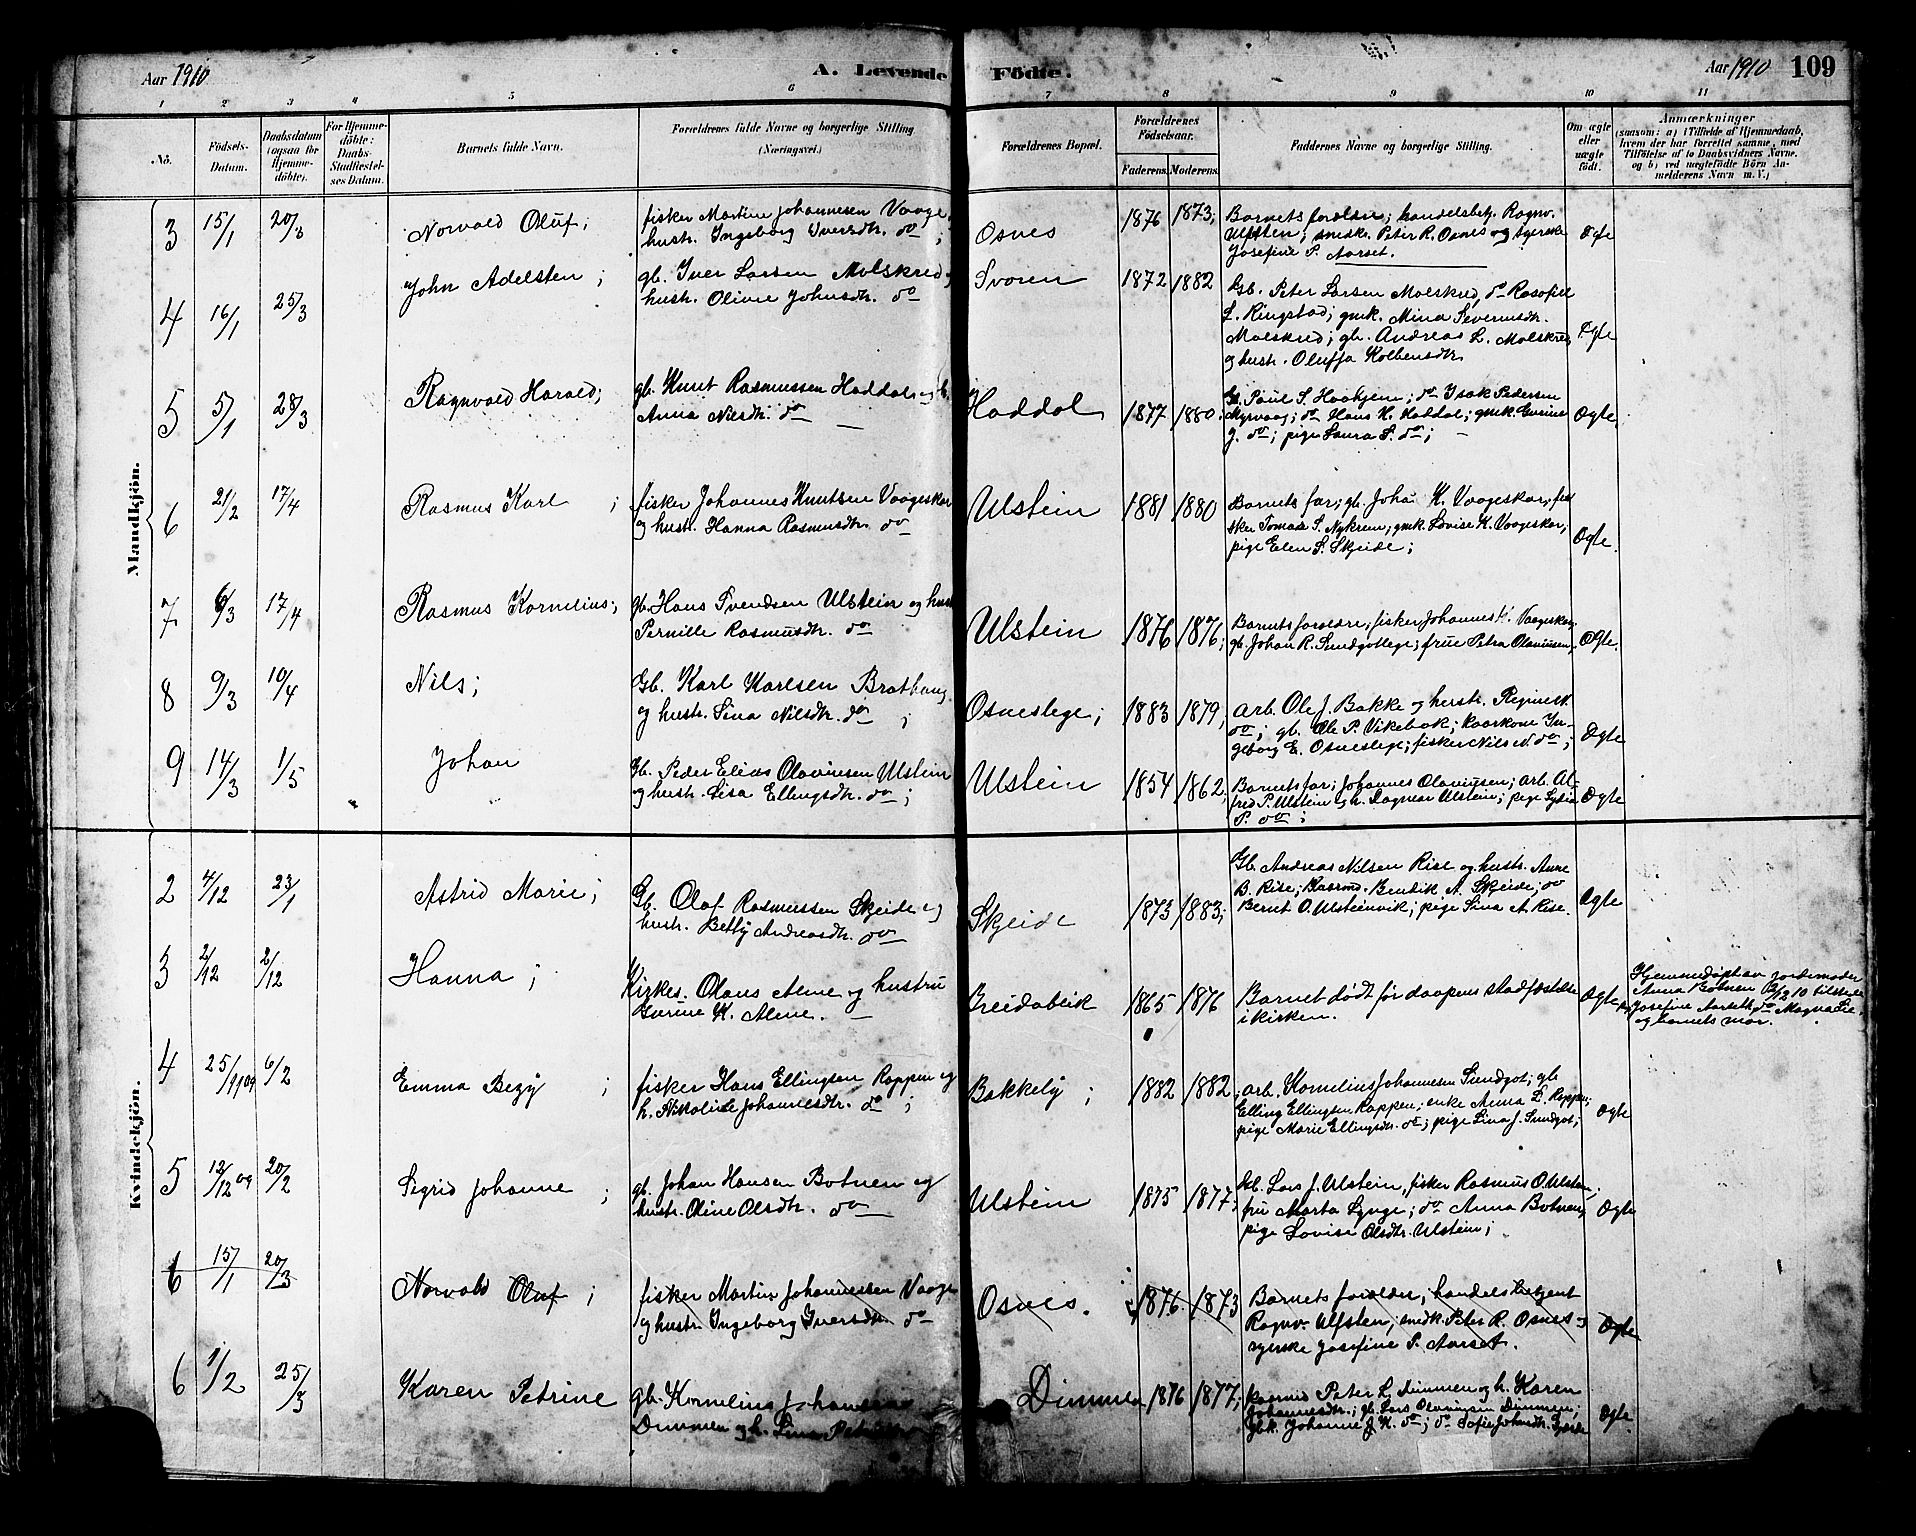 Aar 1910
A. Levende Födte.
Aar 1910
109
1 2 3 4 5 6 7 8 9 10 11
No.
Födsels-
Datum.
Daabsdatum
(ogsaa for
Hjemme-
döbte).
For Hjemme-
döbte:
Daabs-
Stadfæstel-
ses Datum.
Barnets fulde Navn.
Forældrenes fulde Navne og borgerlige Stilling
(Næringsvei.)
Forældrenes Bopæl.
Forældrenes
Födselsaar.
Faderens.
Moderens.
Faddernes Navne og borgerlige Stilling.
Om ægte
eller
uægte
födt.
Anmærkninger
(saasom: a) i Tilfælde af Hjemmedaab,
hvem der har forrettet samme, med
Tilföielse af to Daabsvidners Navne,
og b) ved uægtefödte Börn An-
melderens Navn m. V.)
Mandkjön.
3 15/1 20/3 Norvald Oluf;
fisker Martin Johannesen Vaage,
hustr. Ingeborg Iversdtr. do;
Osnes
1876 1873;
Barnets forældre; handelsbetj. Ragnv.
Ulfsten; snedk. Peter R. Osnes og syerske
Josefine P. Aarset.
Ægte
4 16/1 25/3 John Adelsten;
gb. Iver Larsen Molskred,
hustr. Olivie Johnsdtr. do
Svoren
1872 1882
Gb. Peter Larsen Molskred, do
L. Ringstad; gmk. Mina Severinsdtr.
Molskred; gb. Andreas L. Molskred
og hustr. Oluffa
Ægte
5 5/1 28/3 Ragnvald Harald;
gb. Knut Rasmussen Haddal og h.
Anna Nilsdtr. do
Haddal
1877 1880.
Gb. Paul S. Haahjem; do Isak Pedersen
Myrvaag; do Hans K. Haddal; gmk.
J. do; pige Laura S. do;
Ægte,
6 21/2 17/4 Rasmus Karl;
fisker Johannes Knutsen Vaageskar
og hustr. Hanna Rasmusdtr. do
Ulstein
1881 1880
Barnets far; gb. Joha K. Vaageskar; fi-
sker Tomas S. Nykrem; gmk. Lovise K. Vaageskar,
pige Elen S. Skjeide;
Ægte.
7 6/3 17/4 Rasmus Kornelius;
gb. Hans Svendsen Ulstein og hustr
Pernille Rasmusdtr. do
Ulstein
1876 1876;
Barnets forældre; fisker Johannes K. Vaageskar,
gb. Johan R. Sundgotlege; frue Petra Olaviusen,
Ægte.
8 9/3 10/4 Nils;
Gb. Karl Karlsen Brathaug
og hustr. Sina Nilsdtr. do;
Osneslege;
1883 1879;
Arb. Ole J. Bakke og hustr. Regine N.
do; gb. Ole P. Vikebak; kaarkone In-
geborg E. Osneslege; fisker Nils N. do;
Ægte
9 14/3 1/5 Johan
Gb. Peder Elias Olaviusen Ulstein
og hustr. Lisa Ellingsdtr. do;
Ulstein
1854 1862;
Barnets far; Johannes Olaviusen; arb. Al-
fred P. Ulstein og h. Dagmar Ulstein; pige Lydia
P. do;
Ægte
Kvindekjön.
2 4/12 23/1 Astrid Marie;
Gb. Olaf Rasmussen Skjeide og
hustr. Betty Andreasdtr. do
Skjeide
1873 1883;
Gb. Andreas Nilsen Rise og hustr. Anne
B. Rise; Kaarmd. Bendik A. Skjeide; do
Bernt O. Ulsteinvik; pige Sina A. Rise.
Ægte
3 2/12 2/12 Hanna;
Kirkes. Olaus Alme og hustru
Gurine K. Alme.
Breidablik
1865 1876
Barnet dødt før daapens stadfæstelse
i kirken.
Ægte
Hjemmedøpt av jordemoder
Anna Botnen 2/12 10 tilstede
Josefine Aarseth, do Magna Lie
og barnets mor.
4 25/11 09 6/2 Emma Bezy;
fisker Hans Ellingsen Rappen og
h. Nikoline Johannesdtr. do;
Bakkely;
1882 1882
Arb. Kornelius Johannesen Sundgot; gb
Elling Ellingsen Rappen; enke Anna L. Rappen;
pige Marie Ellingsdtr. do; pige Lina J. Sundgot;
Ægte
5 12/12 09 20/2 Sigrid Johanne;
gb. Johan Hansen Botnen og
hustr. Oline Olsdtr. do
Ulstein
1875 1877;
Kb. Lars J. Ulstein, fisker Rasmus O. Ulstein,
fru Marta Lynge; do Anna Botnen,
pige Lovise Olsdtr. Ulstein;
Ægte
6 15/1 20/3 Norvald Oluf;
fisker Martin Johannessen Vaage
og hustr. Ingeborg Iversdtr. do
Osnes.
1876. 1873
Barnets forældre, handelsbetjent
Ragnv. Ulfsten; snedk. Peter R. Osnes og
syerske Josefine P. Aarset.
Ægte
6 1/2 25/3 Karen Petrine
gb. Kornelius Johansen
Dimmen og h. Lina
Dimmen
1876 1877;
Kaarmd Peter L. Dimmen og h. Karen
Johannesdtr.; gb. Lars Olaviusen Dimmen;
gbk. Johanne J. K. do; do Sofie Johnsdtr.
Ægte.